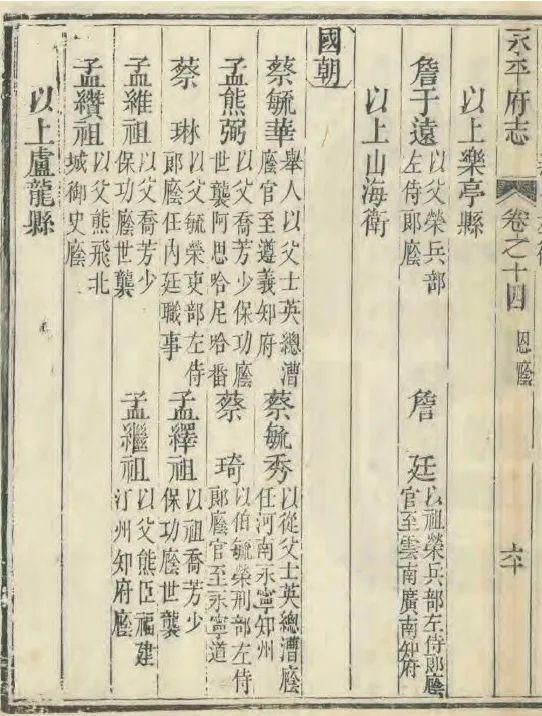 永平府志 卷之十四 恩廕 六十
以上樂亭縣
詹于遠 以父榮兵部左侍郎廕
詹廷 以祖榮兵部左侍郎廕官至雲南廣南知府
以上山海衛
國朝
蔡毓華 舉人以父士英總漕廕官至遵義知府
蔡毓秀 以從父士英總漕廕任河南永寧知州
孟熊弼 以父喬芳少保功廕世襲阿思哈尼哈番
蔡琦 以伯毓榮刑部左侍郎廕官至永寧道
蔡琳 以父毓榮吏部左侍郎廕任內廷職事
孟繹祖 以祖喬芳少保功廕世襲
孟維祖 以父喬芳少保功廕世襲
孟繼祖 以父熊臣福建汀州知府廕
孟纘祖 以父熊飛北城御史廕
以上盧龍縣